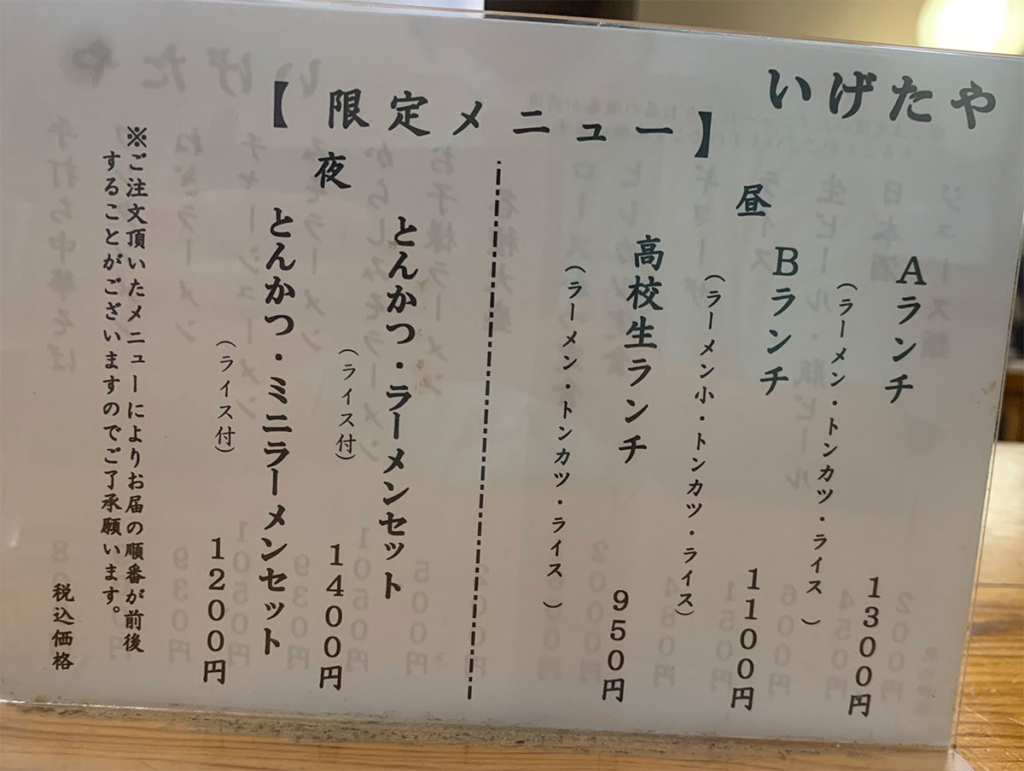 いげたや
【限定メニュー】
昼
Aランチ
(ラーメン・トンカツ・ライス)
1300円
Bランチ
(ラーメン小・トンカツ・ライス)
1100円
高校生ランチ
(ラーメン・トンカツ・ライス)
950円
夜
とんかつ・ラーメンセット
(ライス付)
1400円
とんかつ・ミニラーメンセット
(ライス付)
1200円
※ご注文頂いたメニューによりお届の順番が前後
することがございますのでご了承願います。
税込価格